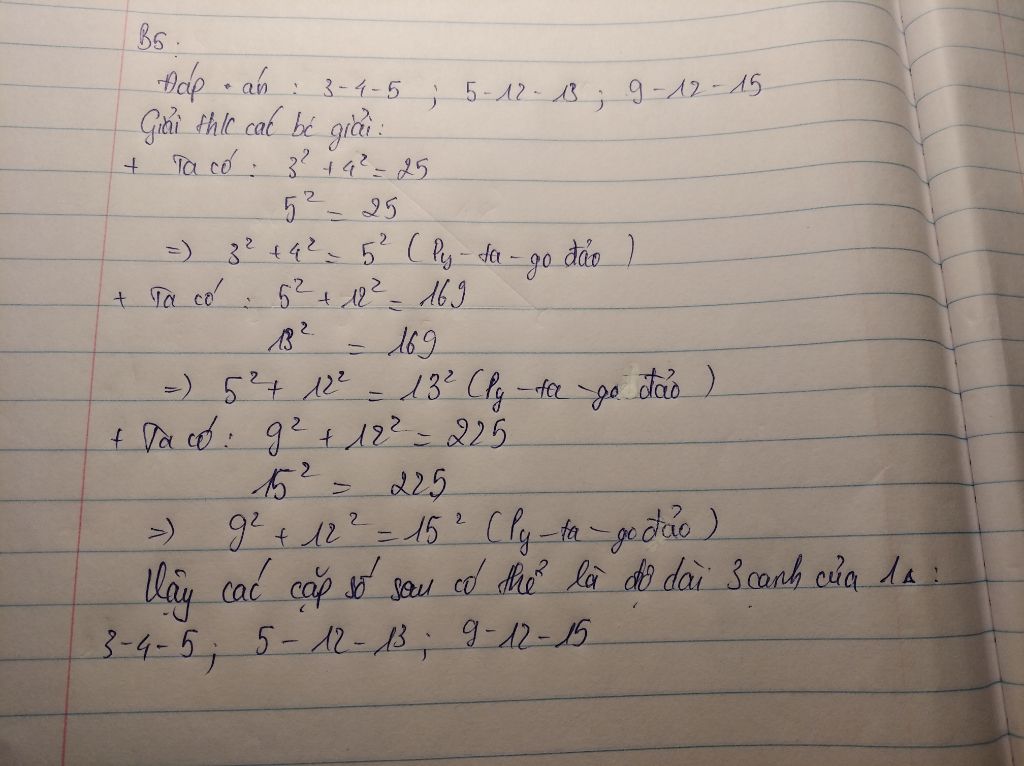 B5.
Đáp án : 3-4-5 ; 5-12-13 ; 9-12-15
Giải thk các bc giải:
+ Ta có : 3² + 4² = 25
5² = 25
=> 3² + 4² = 5² (Py-ta-go đảo)
+ Ta có : 5² + 12² = 169
13² = 169
=> 5² + 12² = 13² (Py-ta-go đảo)
+ Ta có : 9² + 12² = 225
15² = 225
=> 9² + 12² = 15² (Py-ta-go đảo)
Vậy các cặp số sau có thể là độ dài 3 cạnh của 1Δ :
3-4-5 ; 5-12-13 ; 9-12-15